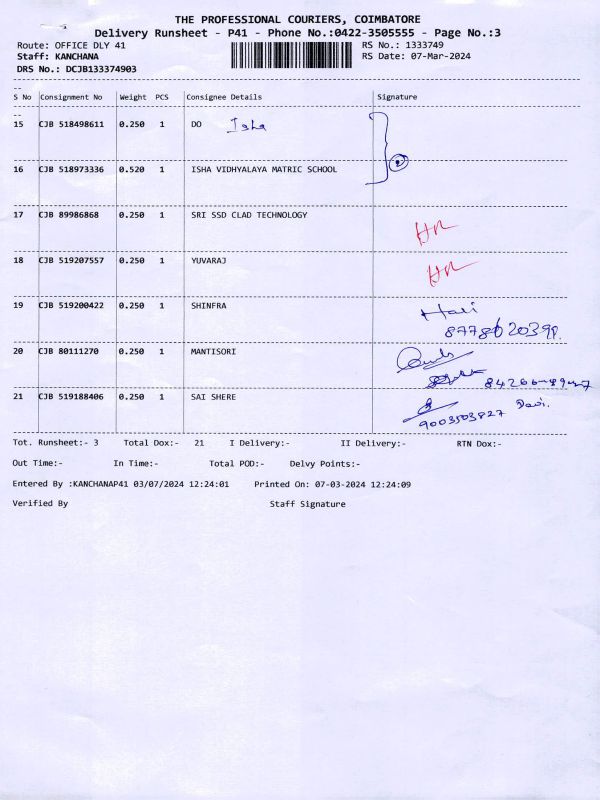 THE PROFESSIONAL COURIERS, COIMBATORE
Delivery Runsheet - P41 - Phone No.:0422-3505555 - Page No.:3
Route: OFFICE DLY 41 RS No.: 1333749
Staff: KANCHANA RS Date: 07-Mar-2024
DRS No.: DCJB133374903
S No Consignment No Weight PCS Consignee Details Signature
15 CJB 518498611 0.250 1 DO Isha
16 CJB 518973336 0.520 1 ISHA VIDHYALAYA MATRIC SCHOOL
17 CJB 89986868 0.250 1 SRI SSD CLAD TECHNOLOGY
18 CJB 519207557 0.250 1 YUVARAJ
19 CJB 519200422 0.250 1 SHINFRA Hari
20 CJB 80111270 0.250 1 MANTISORI
21 CJB 519188406 0.250 1 SAI SHERE
9003503827
Tot. Runsheet:- 3 Total Dox:- 21 I Delivery:- II Delivery:- RTN Dox:-
Out Time:- In Time:- Total POD:- Delvy Points:-
Entered By :KANCHANAP41 03/07/2024 12:24:01 Printed On: 07-03-2024 12:24:09
Verified By Staff Signature